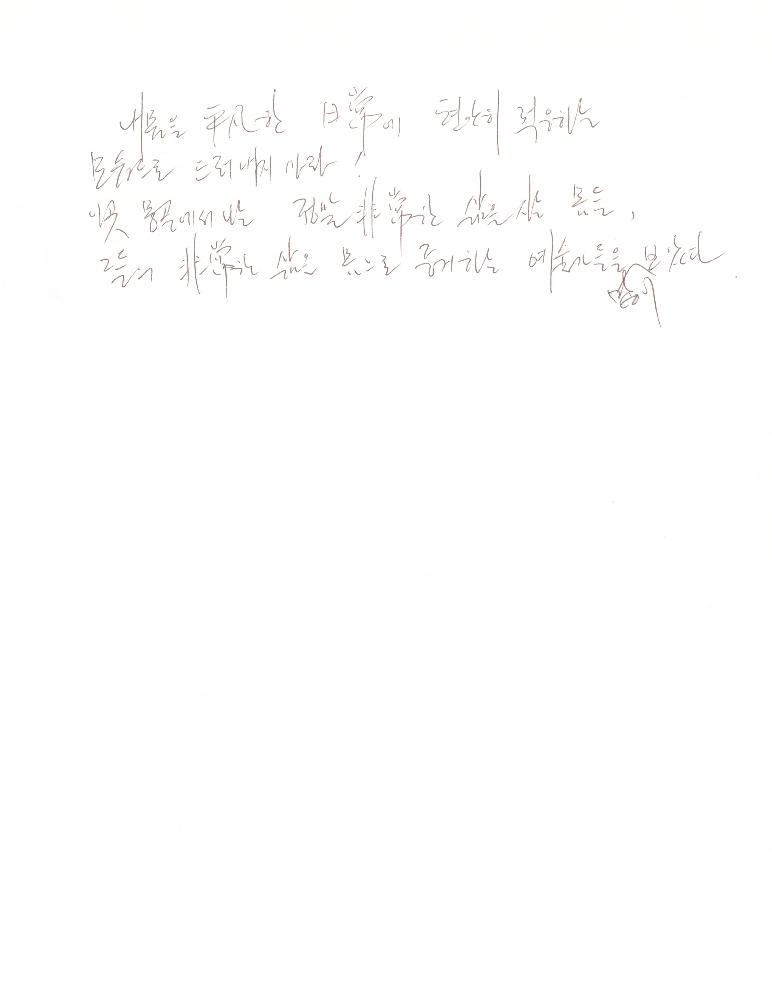 내 몸을 平凡한 日常에 편안히 적응하는
모습으로 드러내지 마라!
이곳 몽골에서 만난 정말 非常한 삶을 사는 몸들,
그들의 非常한 삶을 몸으로 증거하는 예술가들을 보았다.